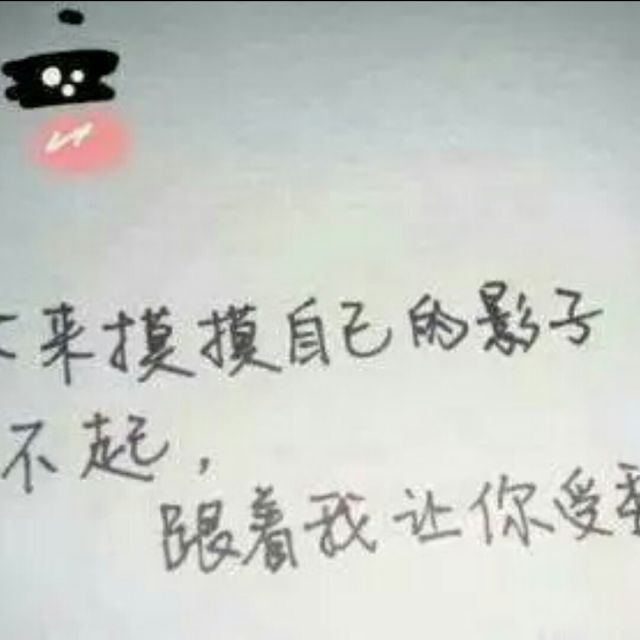 来摸摸自己的影子
不起，
跟着我让你受